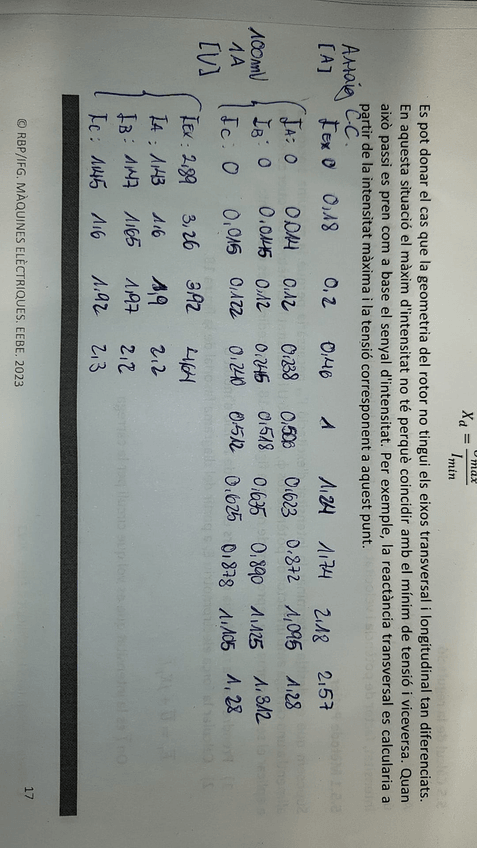 X_d = U_max / I_min
Es pot donar el cas que la geometria del rotor no tingui els eixos transversal i longitudinal tan diferenciats.
En aquesta situació el màxim d'intensitat no té perquè coincidir amb el mínim de tensió i viceversa. Quan
això passi es pren com a base el senyal d'intensitat. Per exemple, la reactància transversal es calcularia a
partir de la intensitat màxima i la tensió corresponent a aquest punt.
Assaig C.C.
[A] IEX 0 0,18 0,2 0,46 1 1,24 1,74 2,18 2,57
IA: 0 0,014 0,12 0,238 0,500 0,623 0,872 1,095 1,28
100mV IB: 0 0,0145 0,12 0,245 0,518 0,635 0,890 1,125 1,312
1A IC: 0 0,015 0,122 0,240 0,512 0,625 0,878 1,105 1,28
[V]
IEX: 2,89 3,26 3,92 4,64
IA: 1,43 1,6 1,9 2,2
IB: 1,47 1,65 1,97 2,2
IC: 1,45 1,6 1,92 2,3
© RBP/IFG. MÀQUINES ELÈCTRIQUES. EEBE. 2023
17